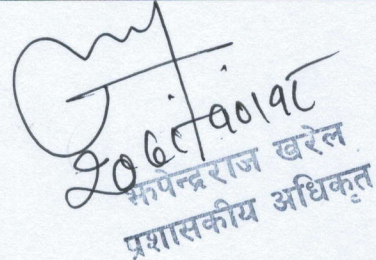 २०७८।१०।१८
रूपेन्द्रराज खरेल
प्रशासकीय अधिकृत